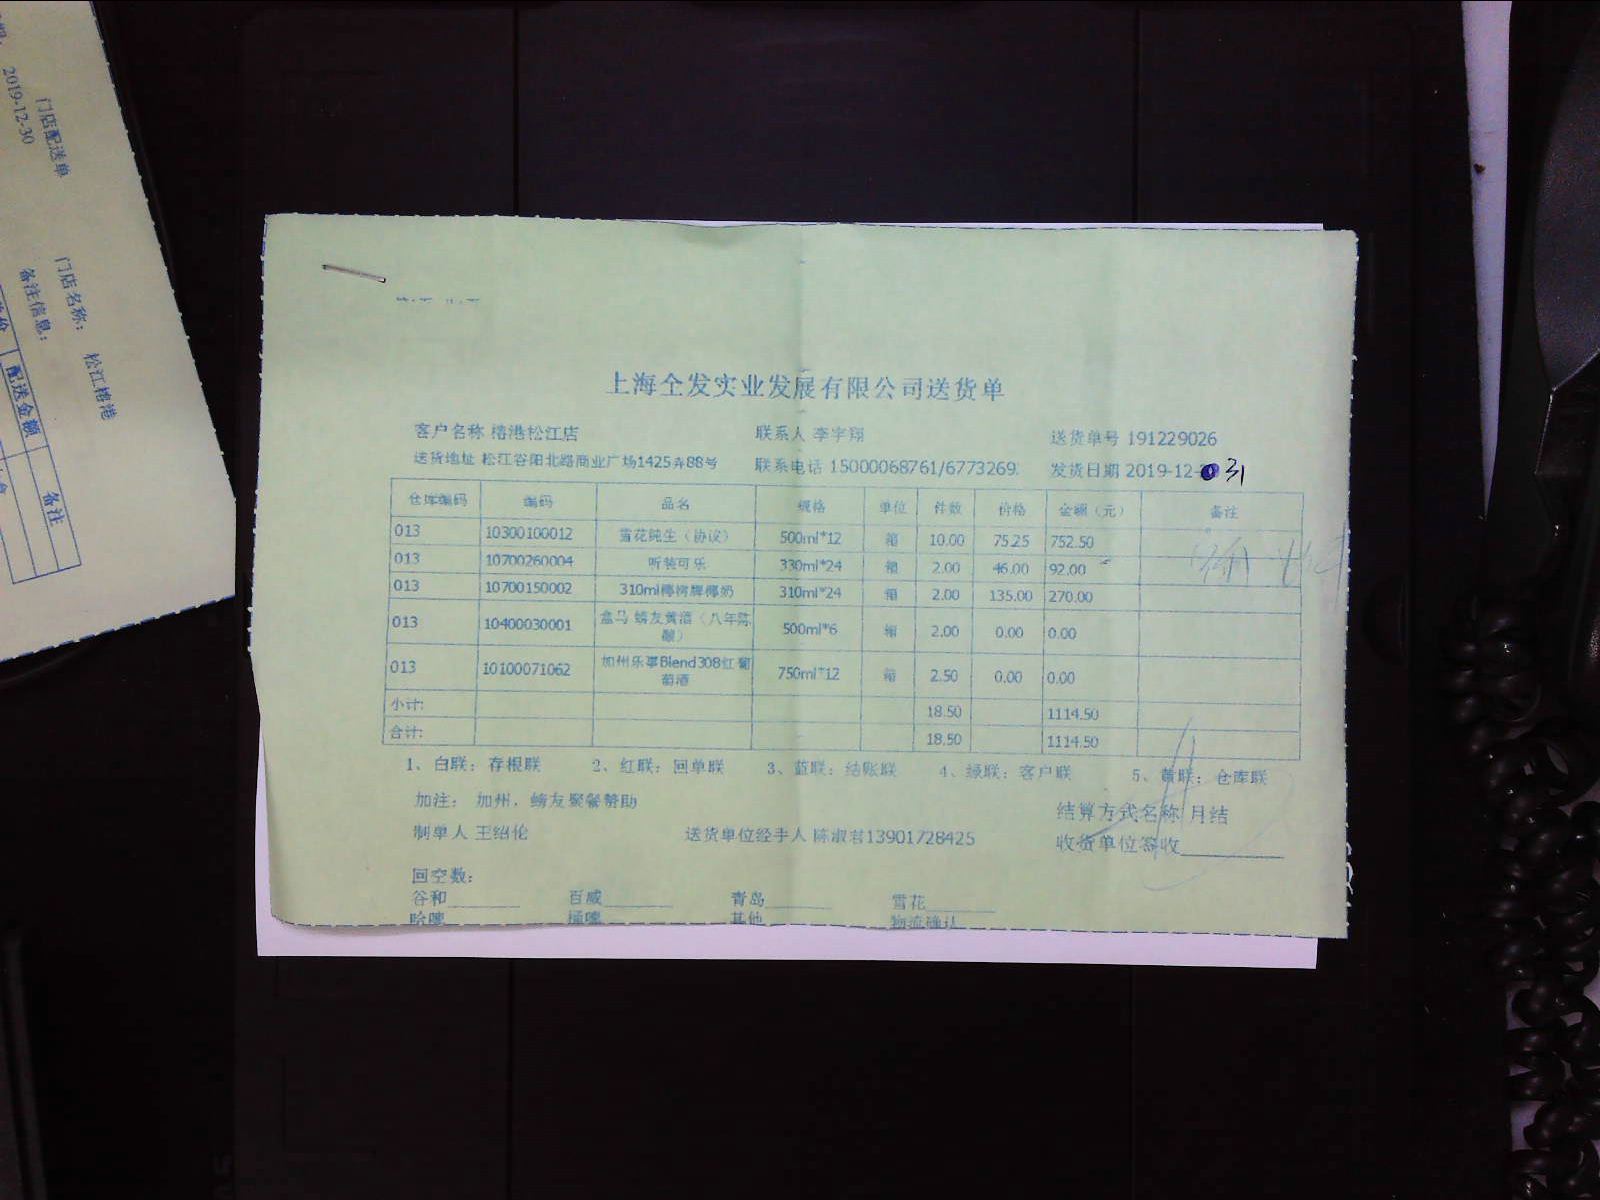 门店配送单
2019-12-30
门店名称： 松江楮港
备注信息：
配送金额 备注
上海全发实业发展有限公司送货单
客户名称 楮港松江店 联系人 李宇翔 送货单号 191229026
送货地址 松江谷阳北路商业广场1425弄88号 联系电话 15000068761/6773269 发货日期 2019-12- 31
仓库编码 编码 品名 规格 单位 件数 价格 金额（元） 备注
013 10300100012 雪花纯生（协议） 500ml*12 箱 10.00 75.25 752.50
013 10700260004 听装可乐 330ml*24 箱 2.00 46.00 92.00
013 10700150002 310ml椰树牌椰奶 310ml*24 箱 2.00 135.00 270.00
013 10400030001 盒马 蟒友黄酒（八年陈酿） 500ml*6 箱 2.00 0.00 0.00
013 10100071062 加州乐事Blend308红葡萄酒 750ml*12 箱 2.50 0.00 0.00
小计: 18.50 1114.50
合计: 18.50 1114.50
1、白联：存根联 2、红联：回单联 3、蓝联：结账联 4、绿联：客户联 5、黄联：仓库联
加注： 加州，蟒友聚餐赞助 结算方式名称 月结
制单人 王绍伦 送货单位经手人 陈淑君13901728425 收货单位签收
回空数：
谷和 百威 青岛 雪花
哈啤 桶啤 其他 物流确认